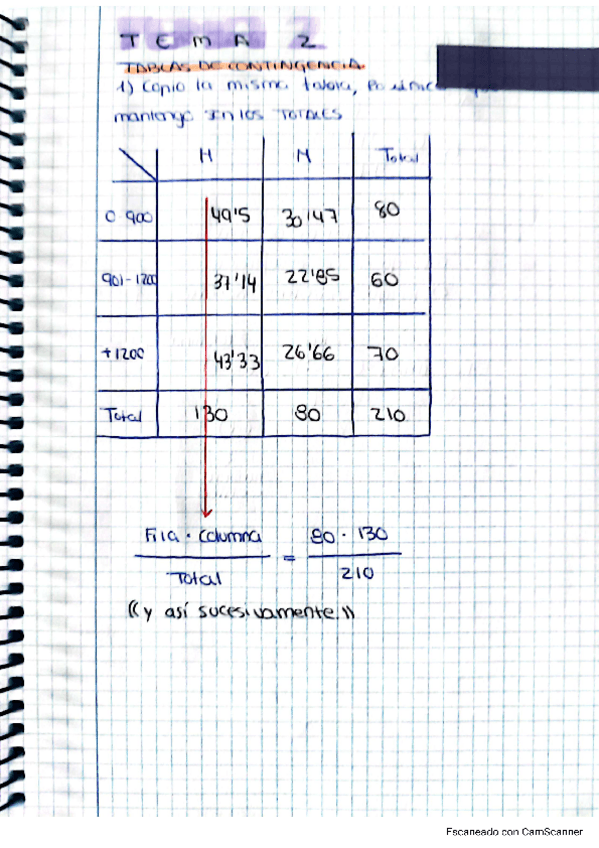 TEMA 2
TABLAS DE CONTINGENCIA
1) Copio la misma tabla, lo único que
mantengo son los TOTALES
H M Total
0-900 49'5 30'47 80
901-1200 37'14 22'85 60
+1200 43'33 26'66 70
Total 130 80 210
Fila · columna = 80 · 130
Total 210
((y así sucesivamente))
Escaneado con CamScanner